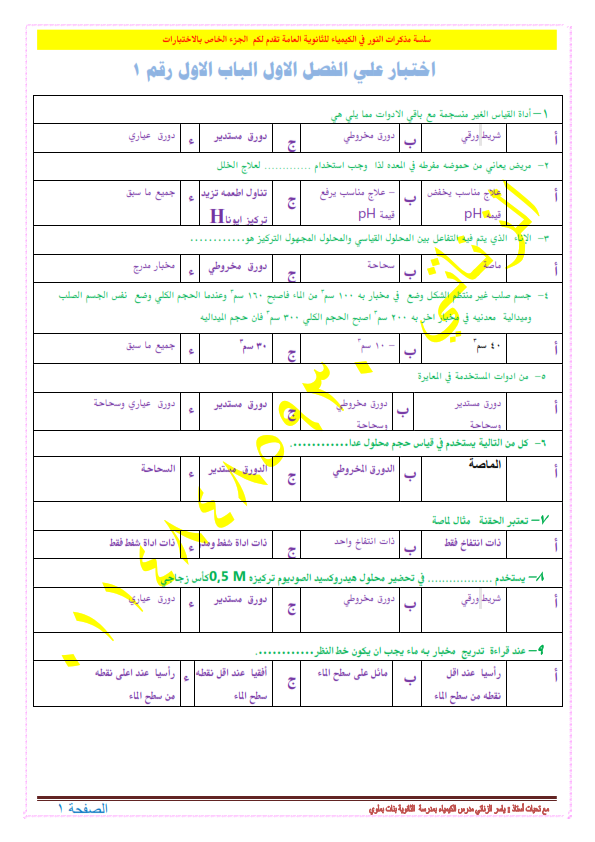 سلسة مذكرات النور في الكيمياء للثانوية العامة تقدم لكم الجزء الخاص بالاختبارات
اختبار علي الفصل الاول الباب الاول رقم ١
١– أداة القياس الغير منسجمة مع باقي الادوات مما يلي هي
أ شريط ورقي ب دورق مخروطي ج دورق مستدير ء دورق عياري
٢- مريض يعاني من حموضه مفرطه في المعده لذا وجب استخدام ............. لعلاج الخلل
أ علاج مناسب يخفض ب – علاج مناسب يرفع ج تناول اطعمه تزيد ء جميع ما سبق
قيمة pH قيمة pH تركيز ايونا H
٣- الإناء الذي يتم فيه التفاعل بين المحلول القياسي والمحلول المجهول التركيز هو............
أ ماصة ب سحاحة ج دورق مخروطي ء مخبار مدرج
٤- جسم صلب غير منتظم الشكل وضع في مخبار به ١٠٠ سم٣ من الماء فاصبح ١٦٠ سم٣ وعندما الحجم الكلي وضع نفس الجسم الصلب
وميدالية معدنيه في مخبار اخر به ٢٠٠ سم٣ اصبح الحجم الكلي ٣٠٠ سم٣ فان حجم الميداليه
أ ٤٠ سم٣ ب – ١٠ سم٣ ج ٣٠ سم٣ ء جميع ما سبق
٥- من ادوات المستخدمة في المعايرة
أ دورق مستدير ب دورق مخروطي ج دورق مستدير ء دورق عياري وسحاحة
وسحاحة وسحاحة
٦- كل من التالية يستخدم في قياس حجم محلول عدا............
أ الماصة ب الدورق المخروطي ج الدورق مستدير ء السحاحة
٧– تعتبر الحقنة مثال لماصة
أ ذات انتفاخ فقط ب ذات انتفاخ واحد ج ذات اداة شفط ومد ء ذات اداة شفط فقط
٨– يستخدم .................. في تحضير محلول هيدروكسيد الصوديوم تركيزه 0,5 M كأس زجاجي
أ شريط ورقي ب دورق مخروطي ج دورق مستدير ء دورق عياري
٩– عند قراءة تدريج مخبار به ماء يجب ان يكون خط النظر............
أ رأسيا عند اقل ب مائل على سطح الماء ج أفقيا عند اقل نقطه ء رأسيا عند اعلى نقطه
نقطه من سطح الماء سطح الماء من سطح الماء
مع تحيات أستاذ : ياسر الزناتي مدرس الكيمياء بمدرسة الثانوية بنات بملوي
الصفحة ١